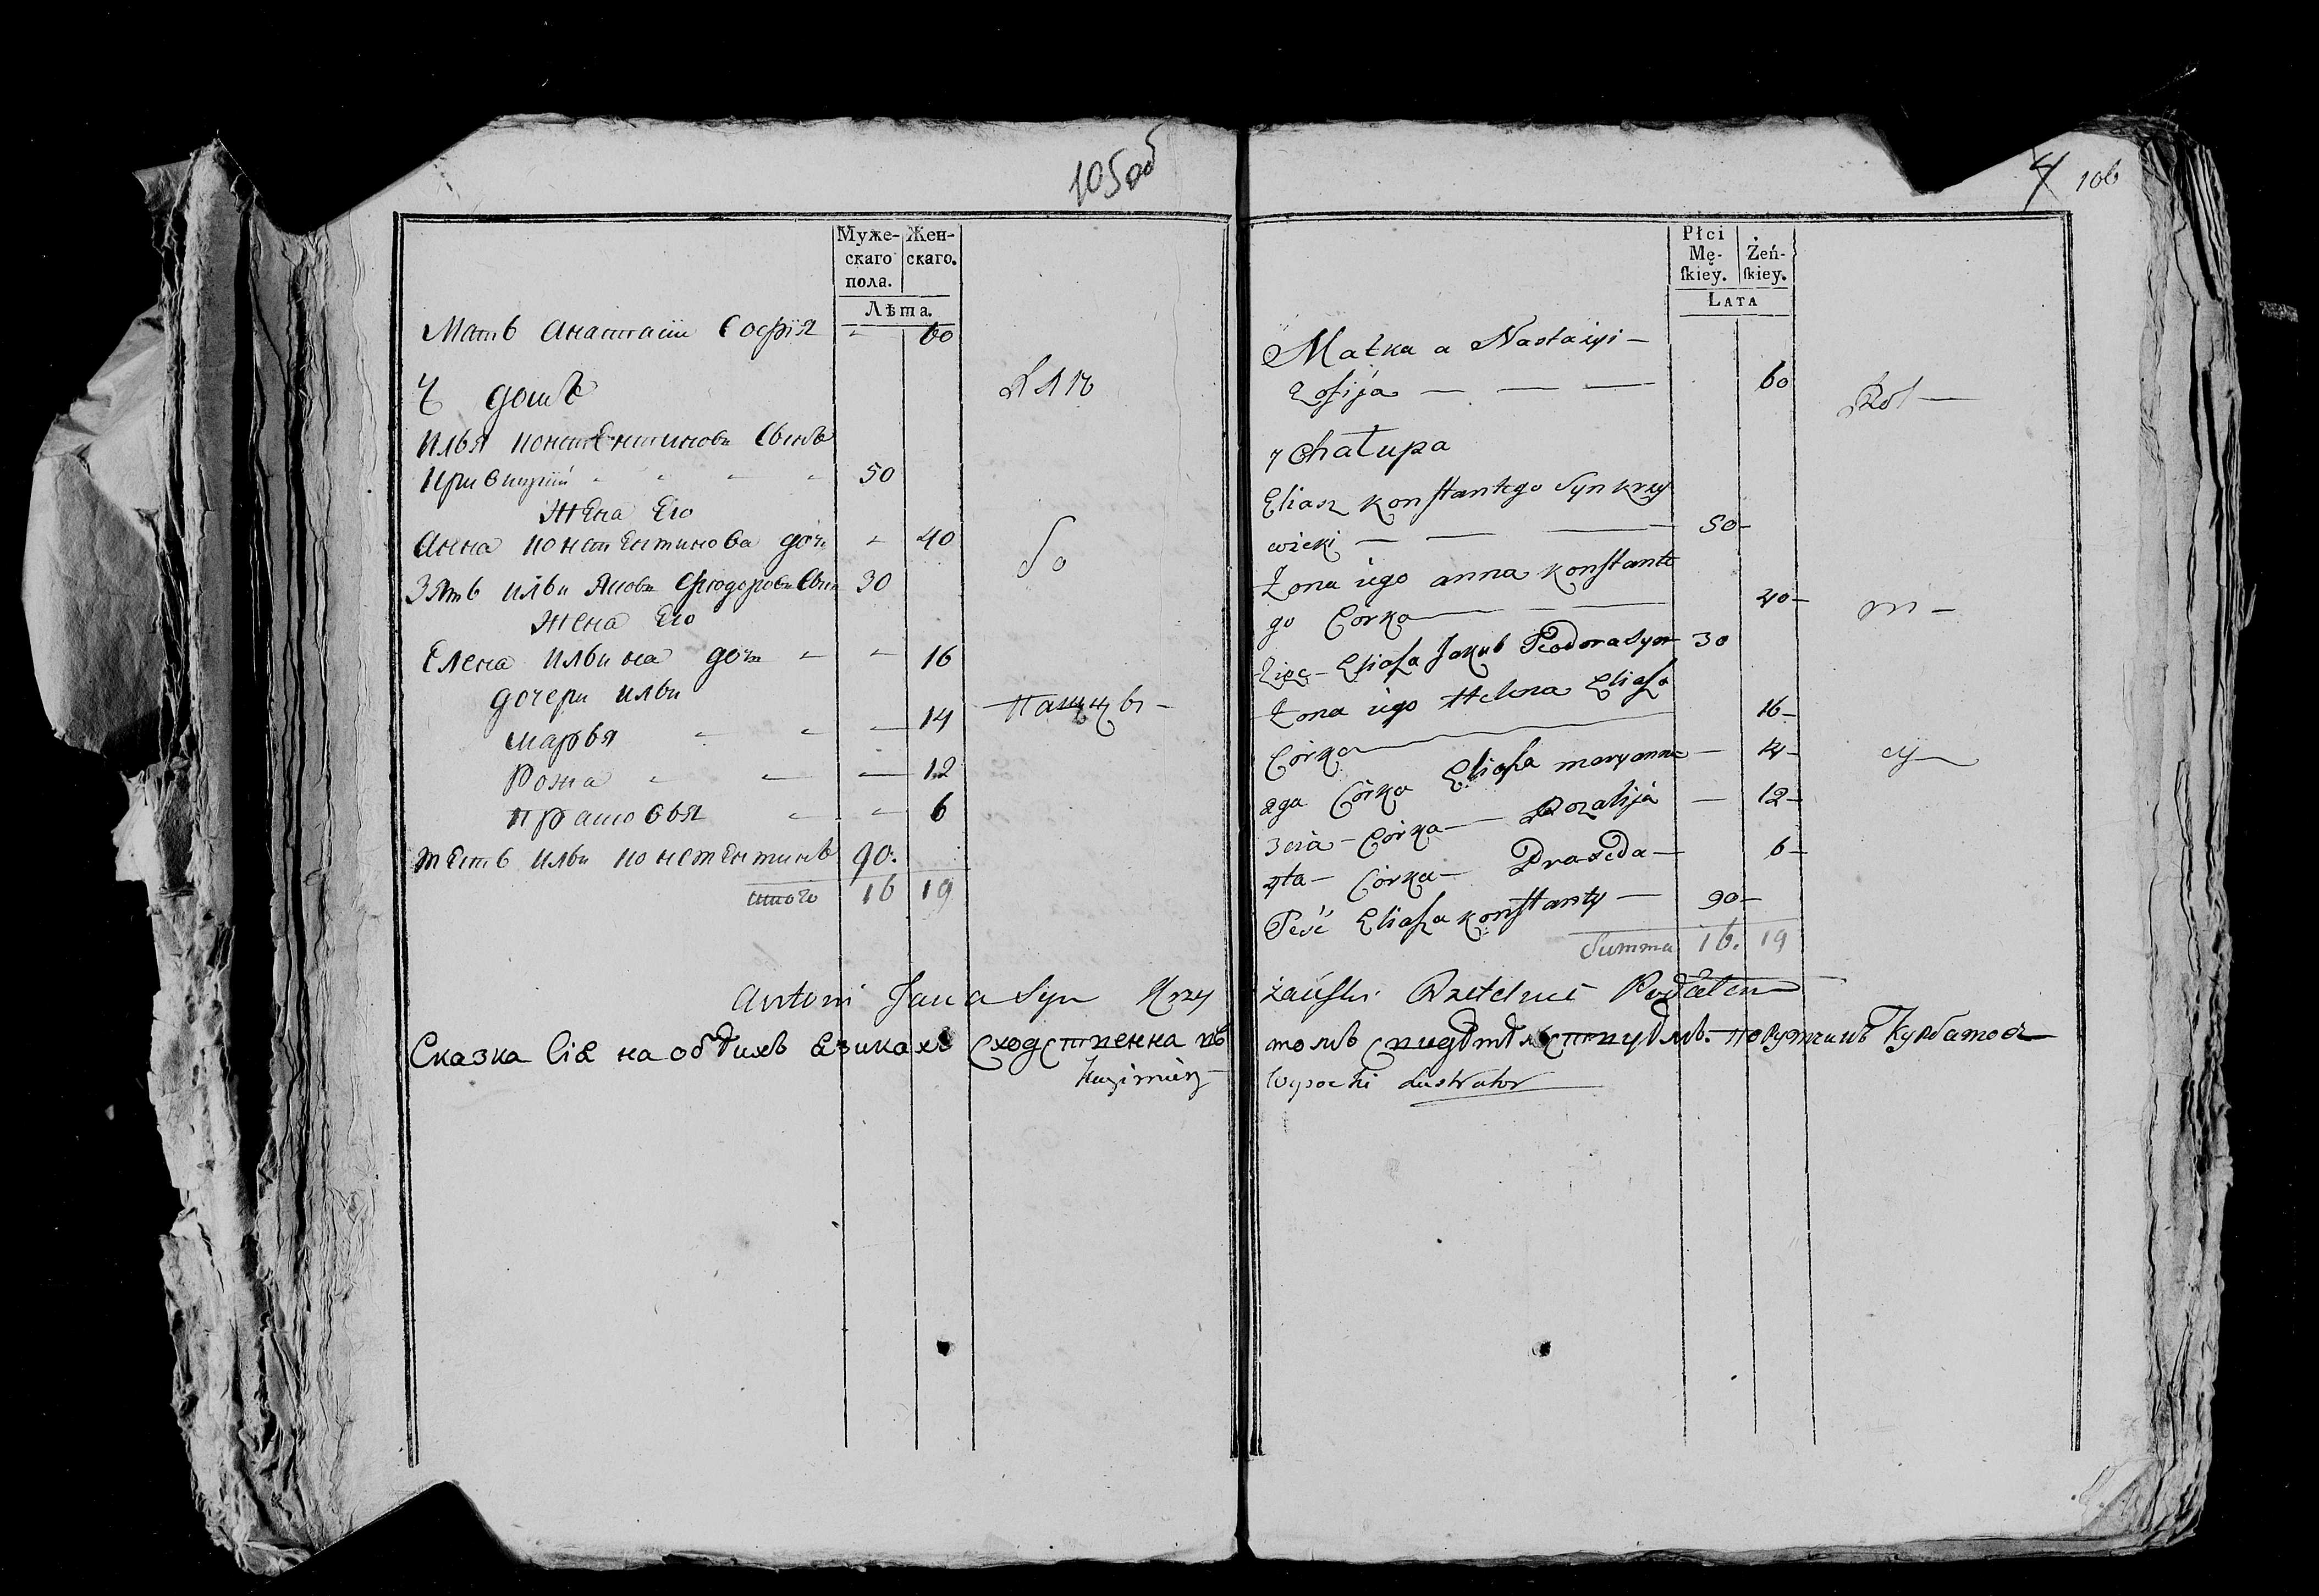 105 об
Муже-
скаго
пола.
Жен-
скаго.
Лѣта.
Мать Анастасіи Софія 60
Ч домъ
Илья Констентиновъ Сынъ
Кривицкій 50
Жена Его
Анна Констентинова дочь 40
Зять Ильи Яковъ Фіодоровъ Сынъ 30
Жена Его
Елена Ильина дочь 16
дочери Ильи
Марья 14
Рожа 12
Прасковья 6
тесть Ильи Констентинъ 90.
итого 16 19
106
Płci
Mę-
ſkiey.
Żeń-
ſkiey.
LATA
Matka a Nastazyi
Zofija 60
Chałupa
Eliasz Konſtantego Syn Krzy
wicki 50
Żona iego anna Konſtante
go Corka 40
Zięc Eliaſza Jakub Teodora Syn 30
Żona iego Helena Eliaſza
Corka 16
2ga Córka Eliaſza maryanna 14
3cia Córka Rozalija 12
4ta Córka Praxeda 6
Teść Eliaſza Konſtanty 90
Summa 16. 19
Antoni Jana Syn Krzy żańſki Rzetelnie Podałem
Сказка Сія на обѣихъ языкахъ сходственна въ томъ свидѣтельствуемъ. Поручикъ Курбатовъ
Kazimierz Wysocki Lustrator